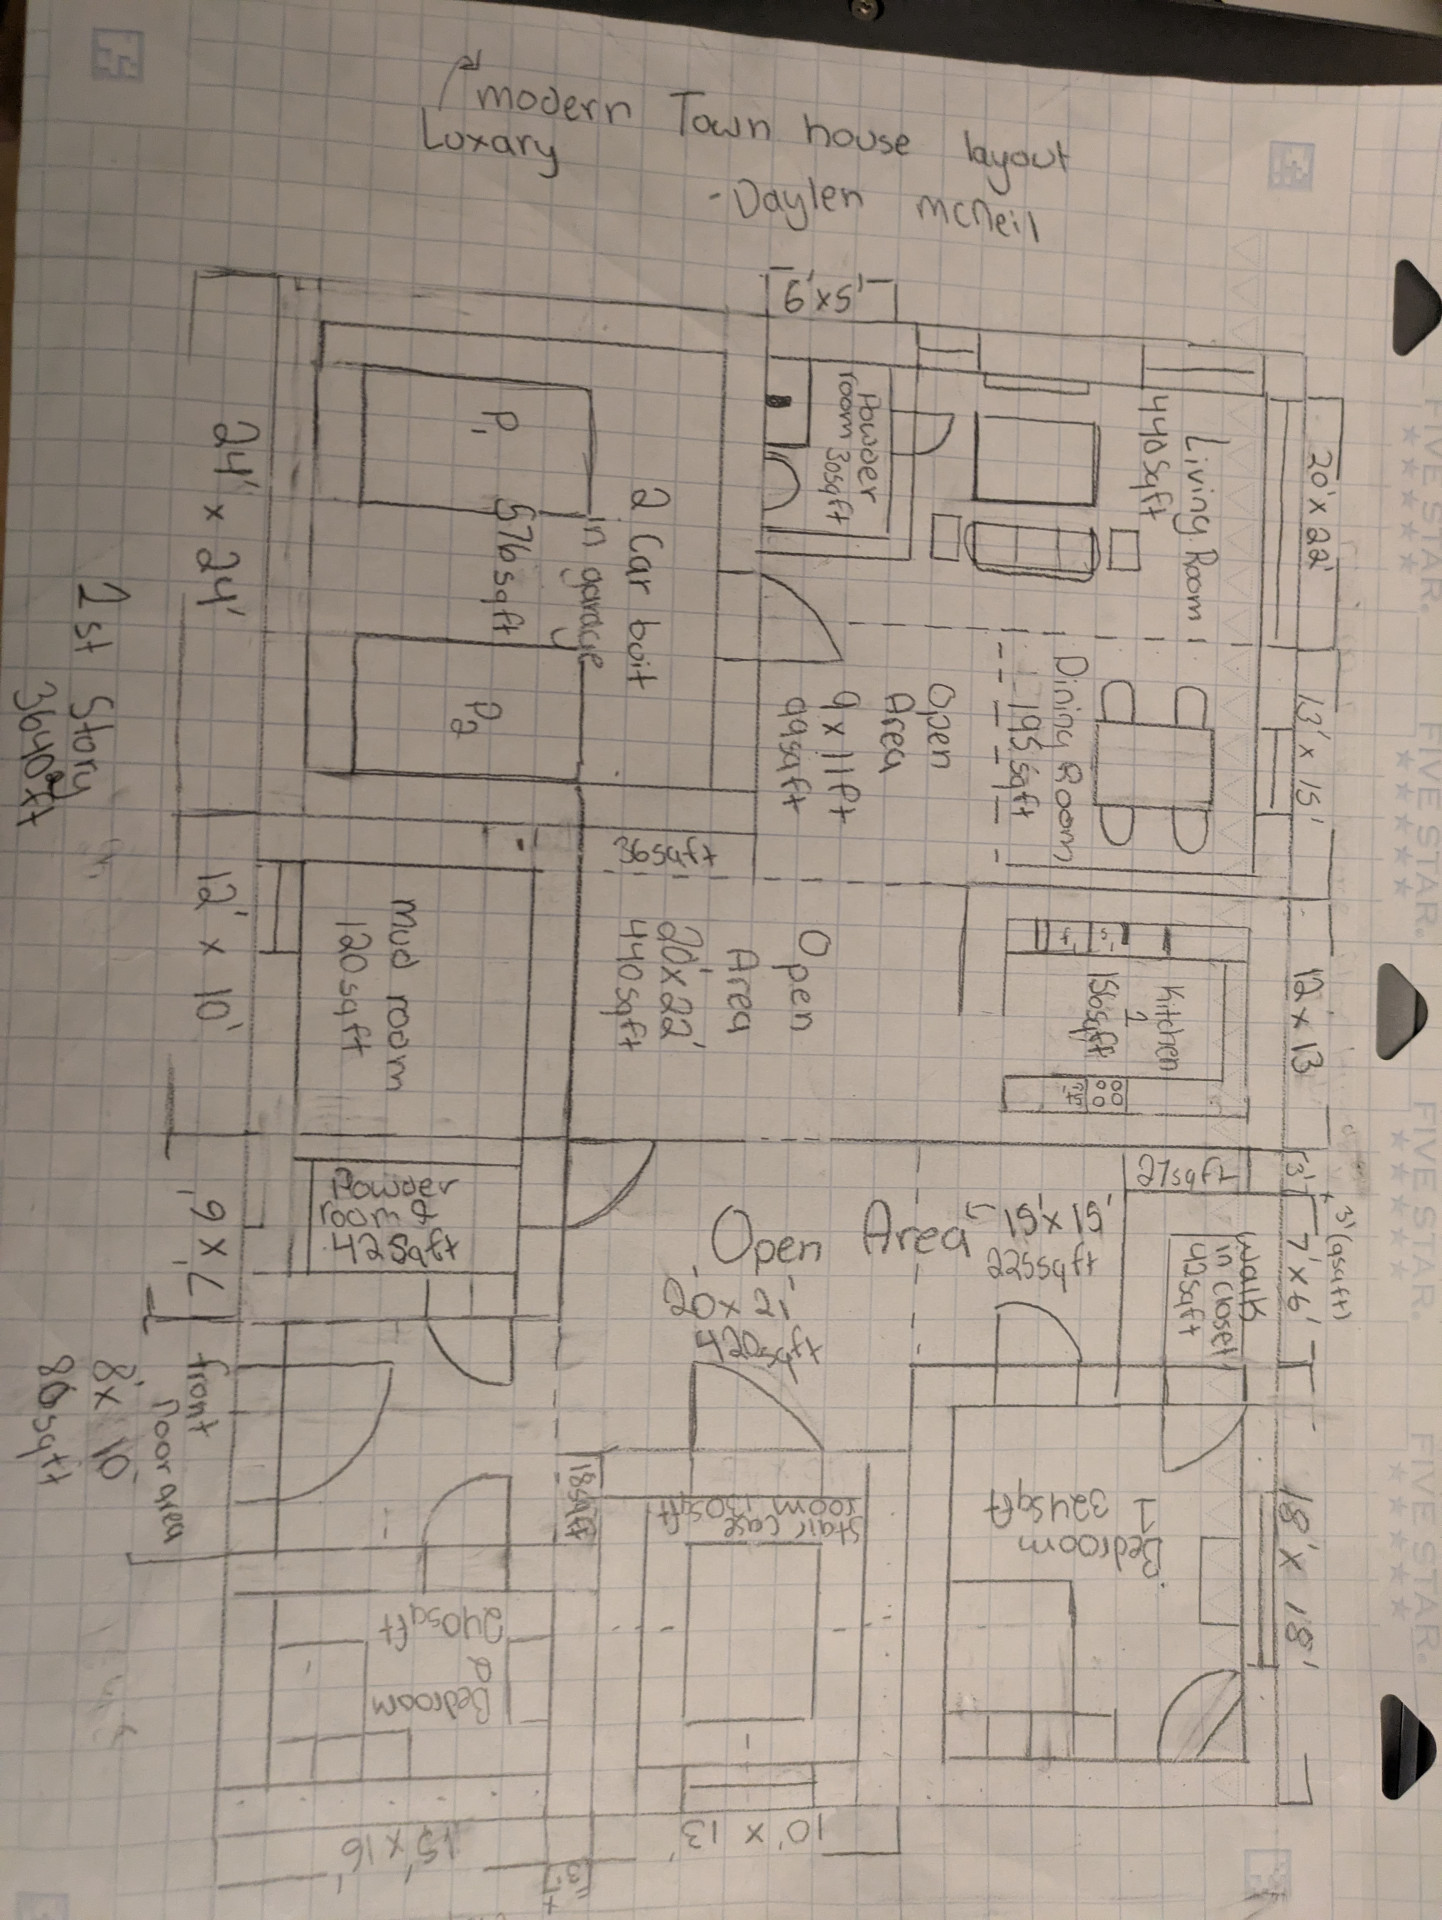 modern Town house layout
Luxary
-Daylen mcneil
6'x5'
20'x22'
13' x 15'
12' x 13
3'
3' (9sqft)
7' x 6'
18' x 18'
Living Room
440sqft
Powder
room 30sqft
Dining Room
195sqft
Open
Area
9x11ft
99sqft
2 Car buit
in garage
576sqft
P1
P2
24' x 24'
36sqft
Kitchen
1
156sqft
Open
Area
20'x22'
440sqft
mud room
120sqft
12' x 10'
27sqft
walk
in closet
42sqft
Open Area
15'x15'
225sqft
20'x 21'
420sqft
Powder
room 2
42sqft
front
Door area
8'x 10'
80sqft
Bedroom
1
324sqft
Stair case
room 130sqft
18sqft
Bedroom
2
240sqft
10' x 13'
15' x 16'
1st Story
FIVE STAR.
FIVE STAR.
FIVE STAR.
FIVE STAR.